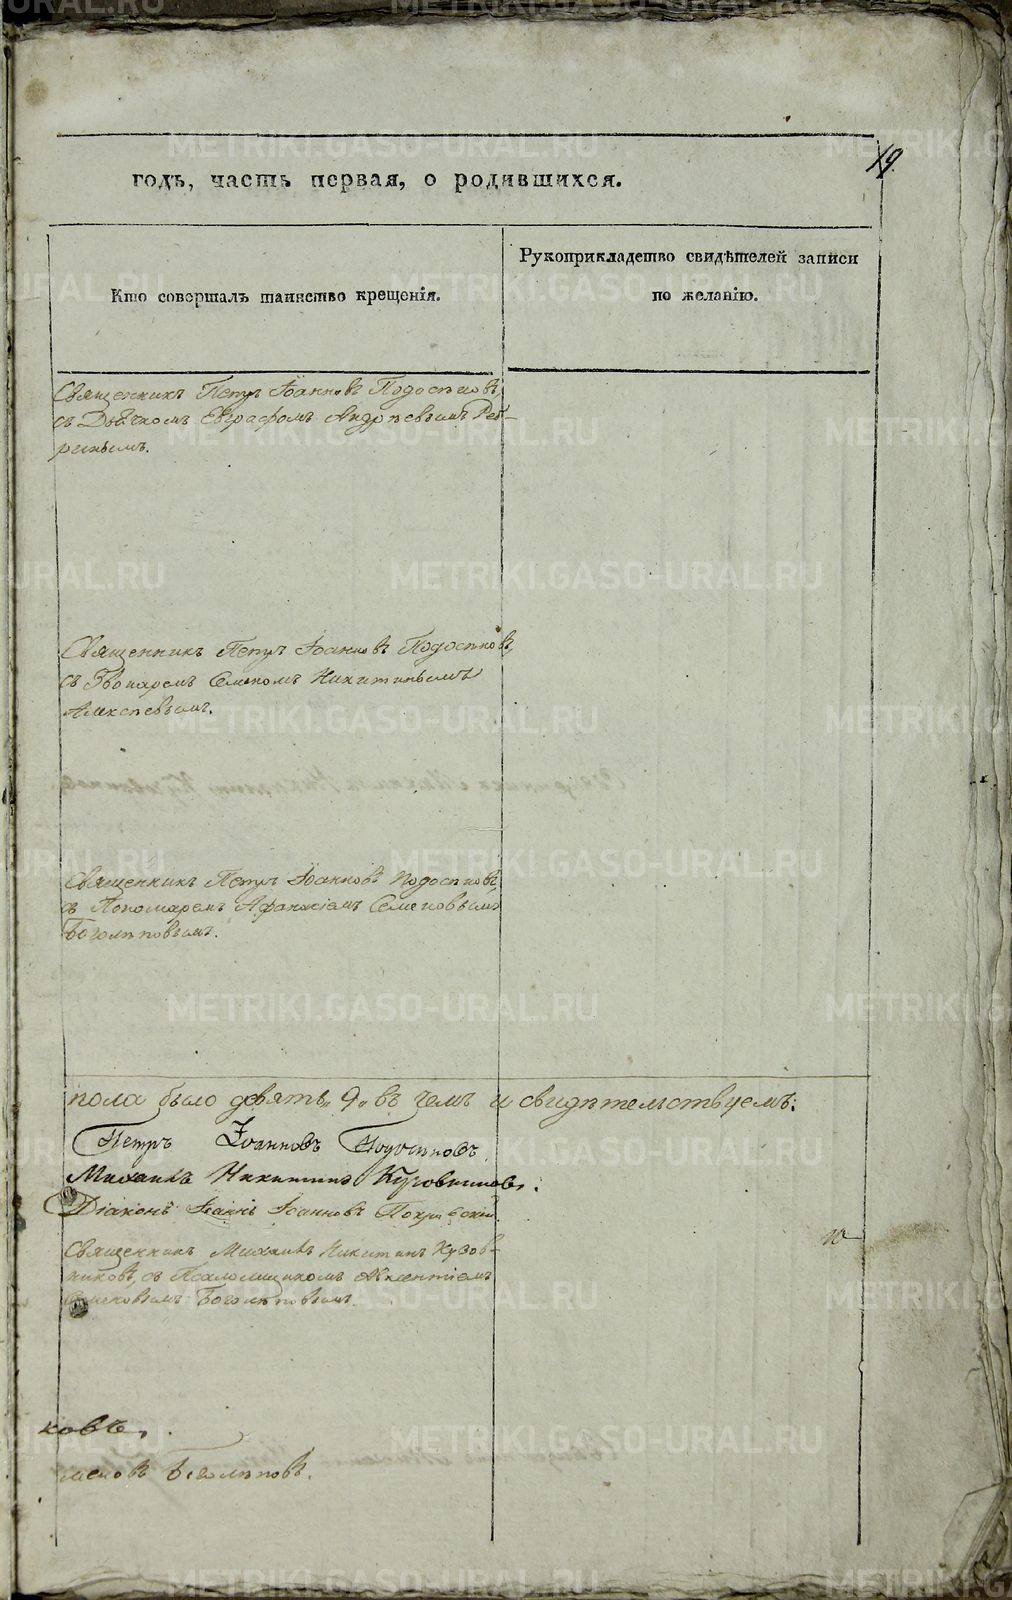 19.
годъ, часть первая, о родившихся.
Кто совершалъ таинство крещенія.
Рукоприкладство свидѣтелей записи
по желанію.
Священникъ Петръ Іоанновъ Подосѣновъ,
съ Дьячкомъ Евграфомъ Андрѣевымъ
Священникъ Петръ Іоанновъ Подосѣновъ,
съ Звонаремъ Семеномъ Никитинымъ
Алексѣевымъ.
Священникъ Петръ Іоанновъ Подосѣновъ,
съ Пономаремъ Афанасіемъ Семеновымъ
Боголѣповымъ.
пола было девять „9„ въ чемъ и свидѣтельствуемъ:
Петръ Іоанновъ Подосѣновъ.
Михаилъ Никитинъ Кузовниковъ.
Діаконъ Іоаннъ Іоанновъ
Священникъ Михаилъ Никитинъ Кузов-
никовъ, съ Псаломщикомъ
Семеновымъ Боголѣповымъ.
10
ковъ.
меновъ Боголѣповъ.
METRIKI.GASO-URAL.RU